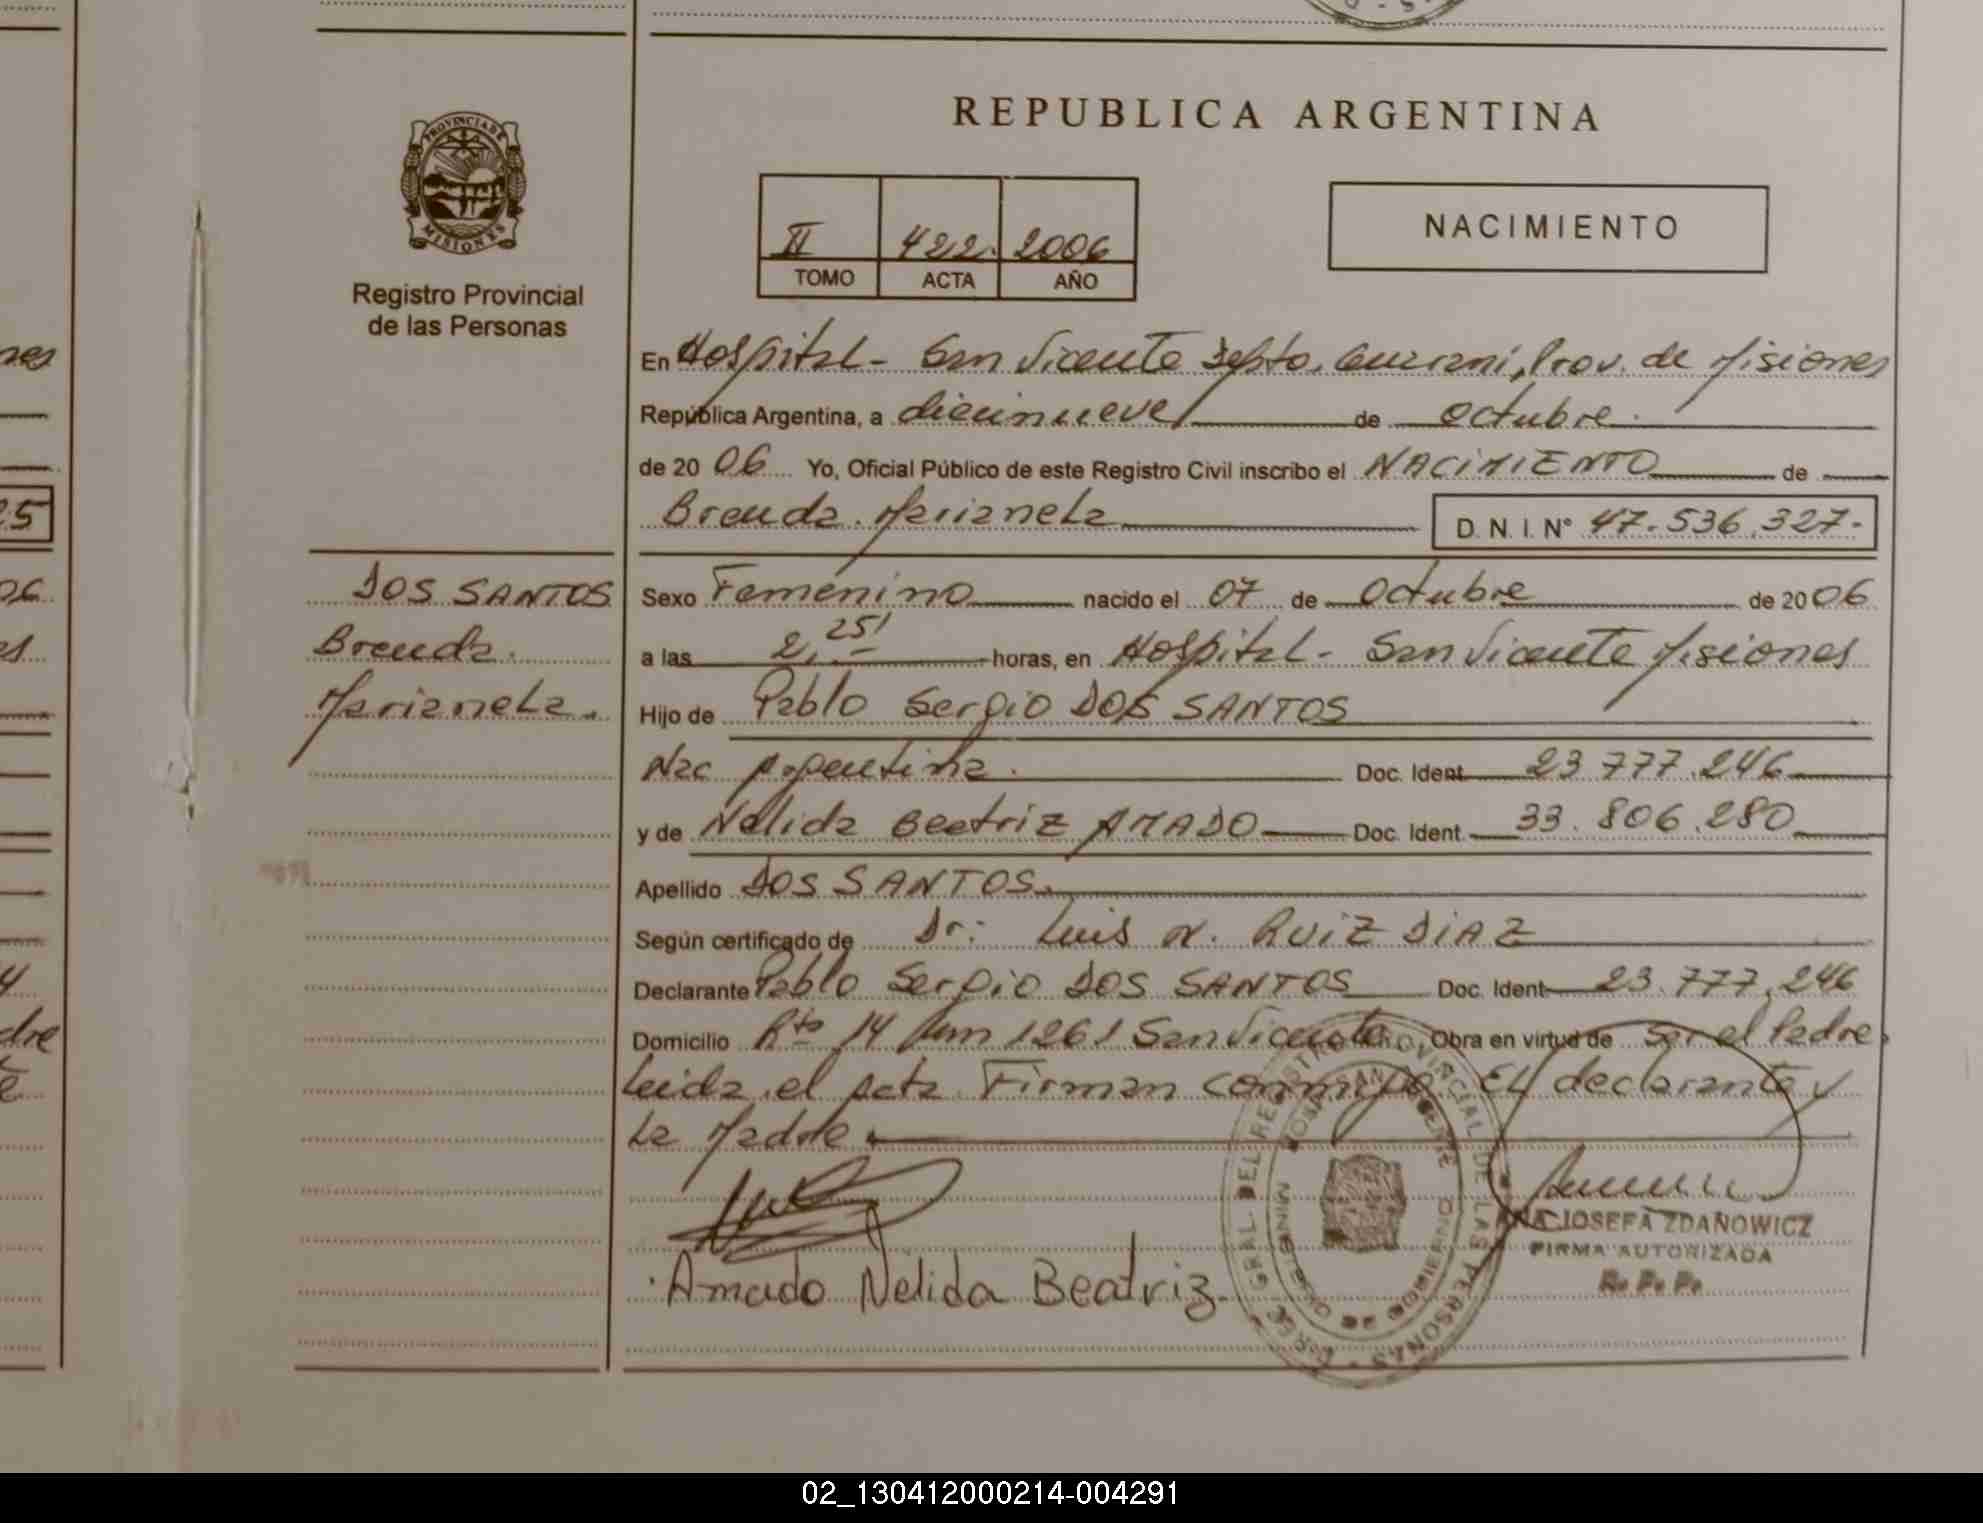 REPUBLICA ARGENTINA
PROVINCIA DE
MISIONES
Registro Provincial
de las Personas
II 422. 2006
TOMO ACTA AÑO
NACIMIENTO
En Hospital - San Vicente Depto. Guarani, Prov. de Misiones
República Argentina, a diecinueve de octubre.
de 20 06 Yo, Oficial Público de este Registro Civil inscribo el NACIMIENTO de
Brenda Marianela D. N. I. N° 47.536.327-
DOS SANTOS
Brenda.
Marianela.
Sexo Femenino nacido el 07 de Octubre de 20 06
a las 2,25' horas, en Hospital - San Vicente Misiones
Hijo de Pablo Sergio DOS SANTOS
Nac Argentina. Doc. Ident. 23.777.246
y de Nelida Beatriz AMADO Doc. Ident. 33.806.280
Apellido DOS SANTOS.
Según certificado de Dr: Luis N. RUIZ DIAZ
Declarante Pablo Sergio DOS SANTOS Doc. Ident 23.777.246
Domicilio Rta 14 km 1261 San Vicente Obra en virtud de Ser el Padre.
Leida el acta Firman conmigo EL declarante y
La Madre.
Amado Nelida Beatriz.
ANA JOSEFA ZDANOWICZ
FIRMA AUTORIZADA
R. P. P.
02_130412000214-004291